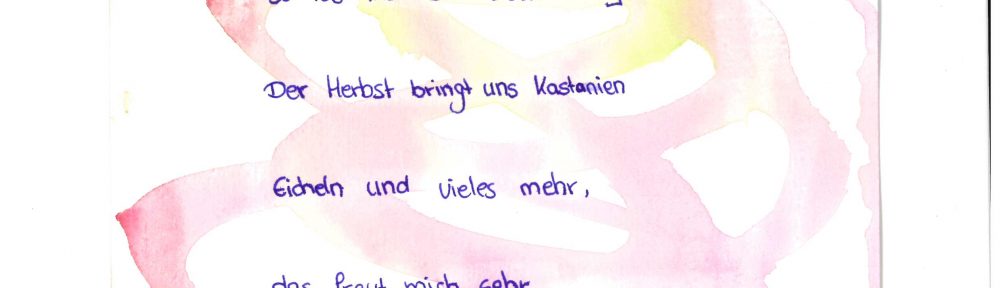 Der Herbst bringt uns Kastanien
Eicheln und vieles mehr,
das freut mich sehr